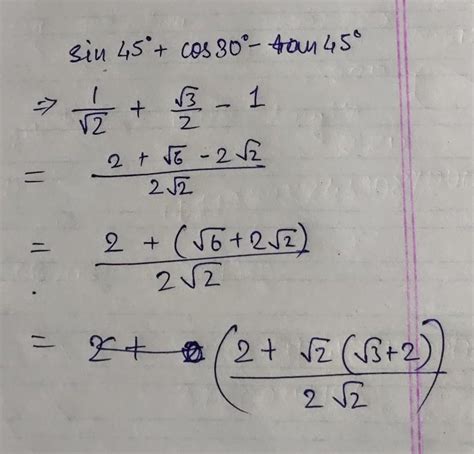 sin 45° + cos 30° - tan 45°
⇒ 1/√2 + √3/2 - 1
= (2 + √6 - 2√2)/(2√2)
= (2 + (√6 + 2√2))/(2√2)
= 2 + ((2 + √2 (√3 + 2))/(2√2))